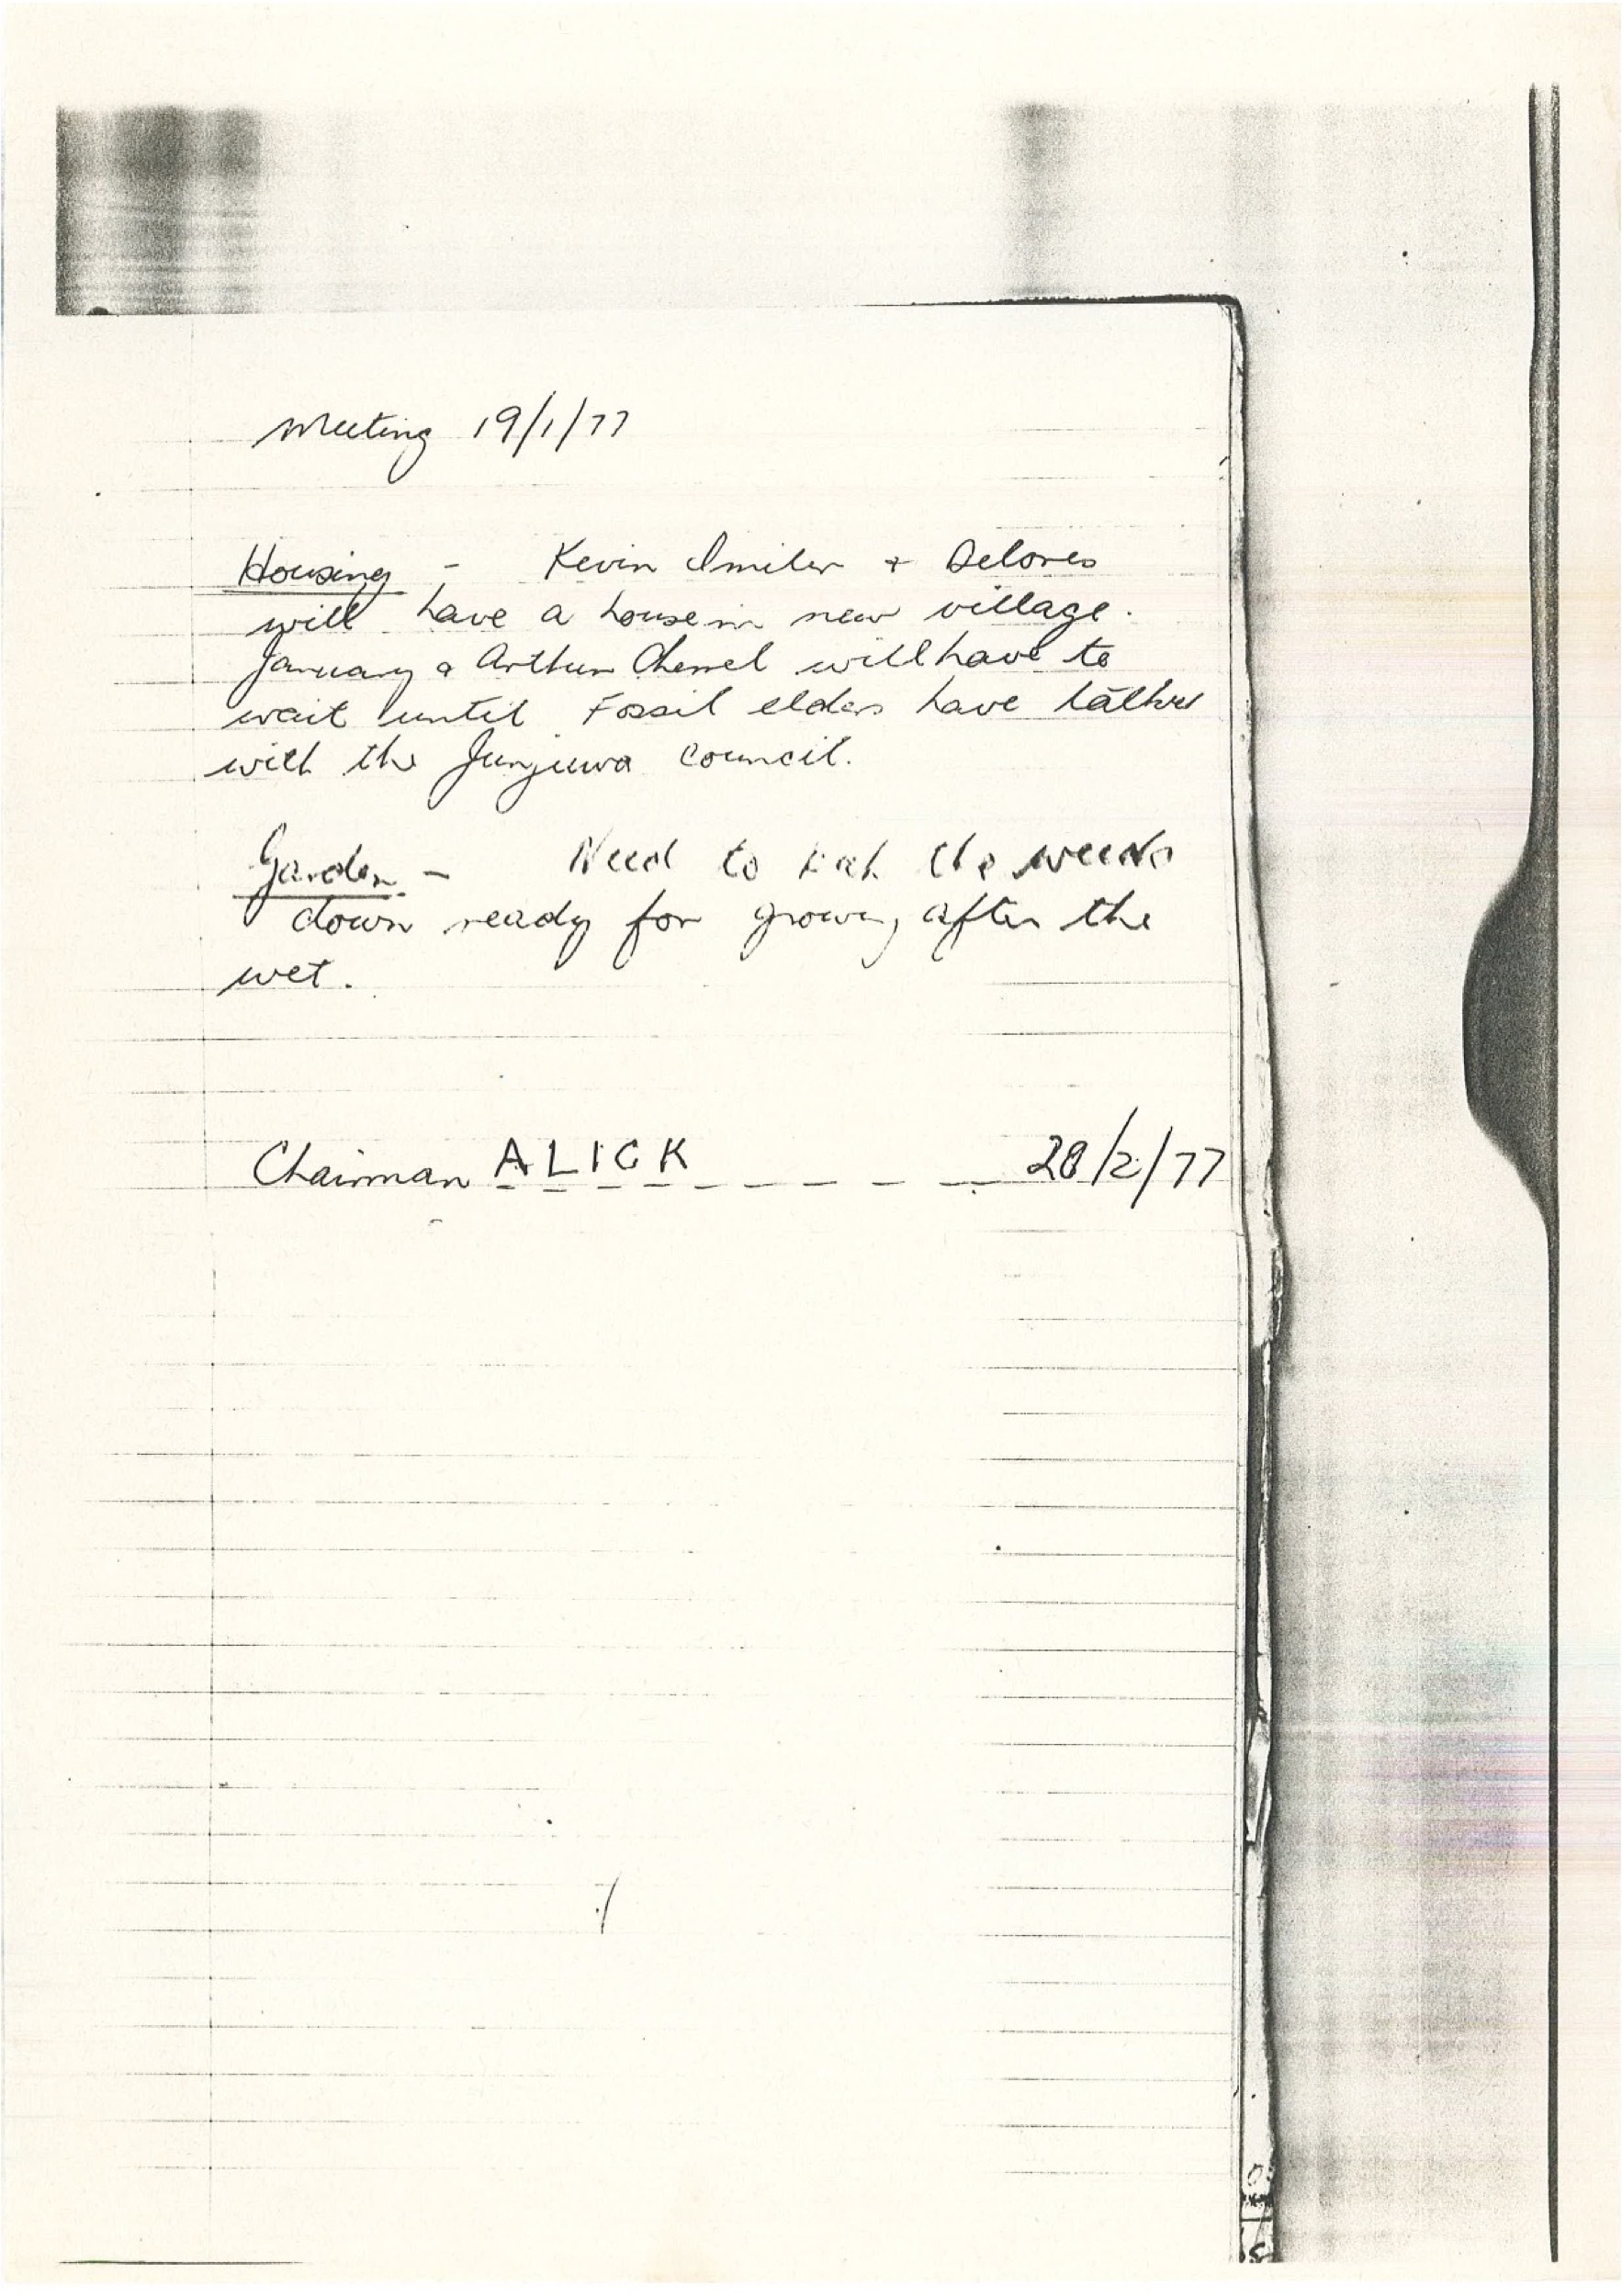 Meeting 19/1/77
Housing - Kevin Smiler + Delores
will have a house in new village.
January & Arthur will have to
wait until Fossil elders have talked
with the Junjuwa Council.
Garden - Need to the weeds
down ready for growing after the
wet.
Chairman ALICK 28/2/77